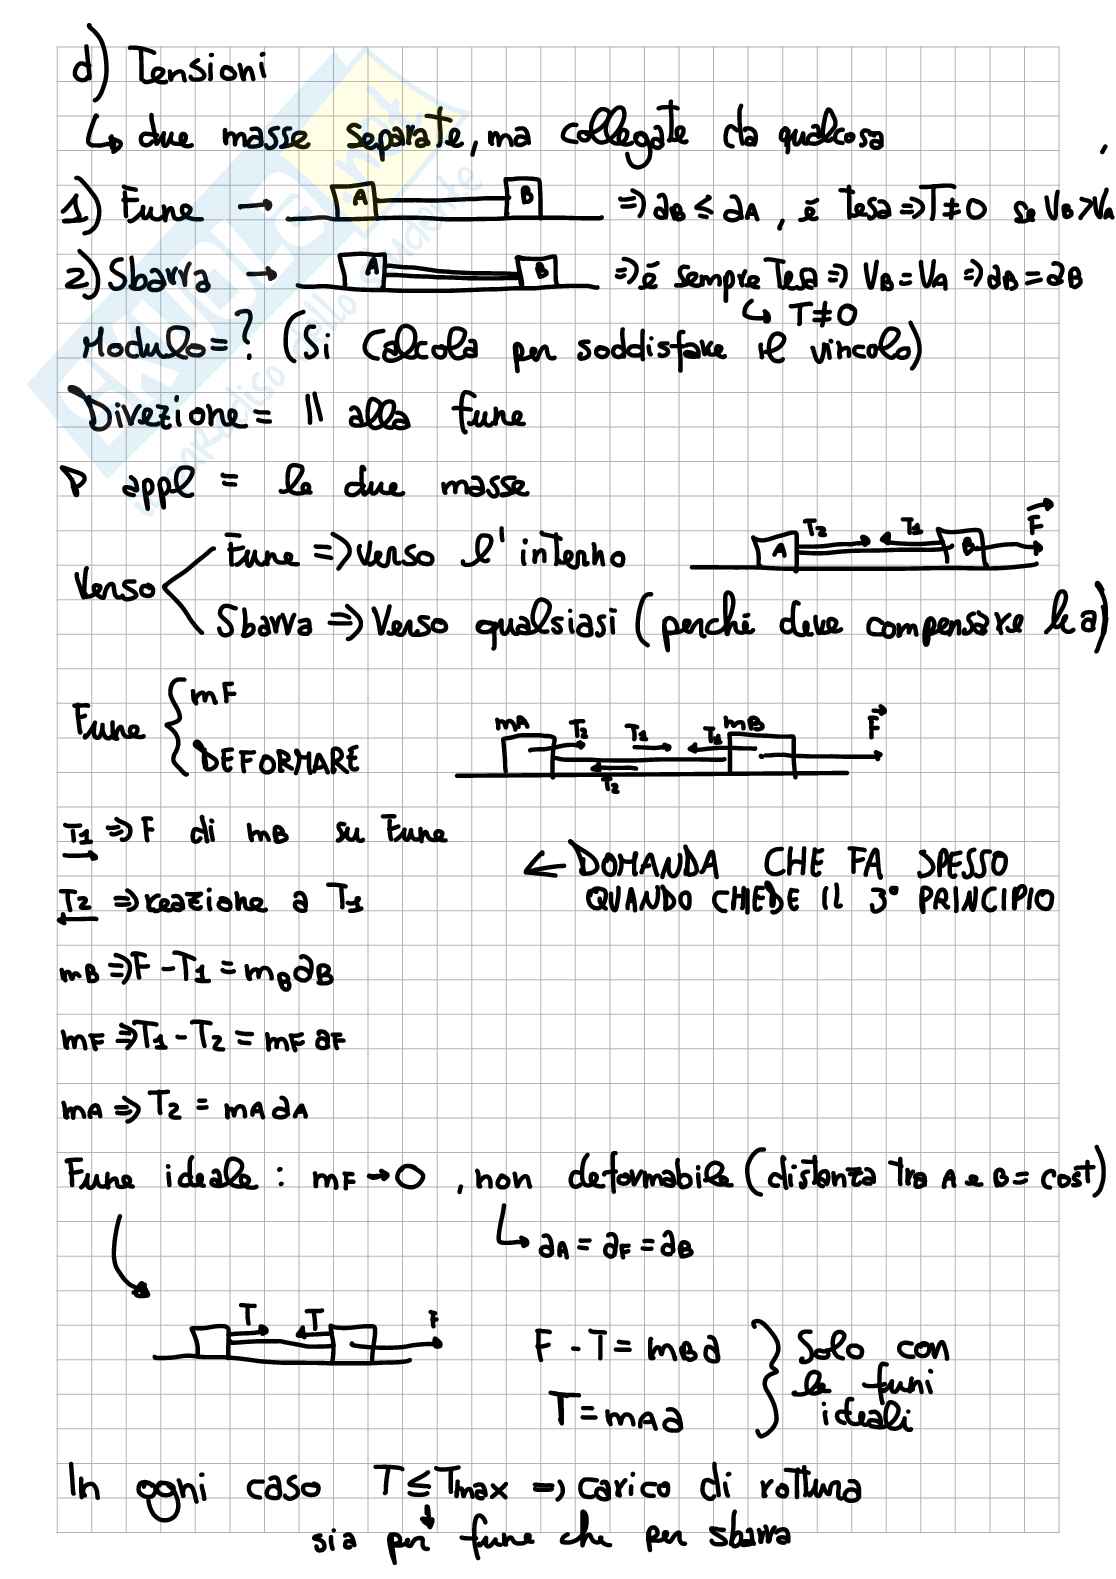 d) Tensioni
↳ due masse separate, ma collegate da qualcosa
1) Fune → A B ⇒ aB ≤ aA, è tesa ⇒ T≠0 se VB>VA
2) Sbarra → A B ⇒ è sempre tesa ⇒ VB = VA ⇒ aB = aB
↳ T≠0
Modulo = ? (Si calcola per soddisfare il vincolo)
Direzione = || alla fune
P appl = le due masse
Verso
Fune ⇒ verso l'interno
A T2 T1 B F
Sbarra ⇒ Verso qualsiasi (perché deve compensare la a)
Fune { mF
DEFORMARE
mA T2 T1 T1 mB F
T2
T1 ⇒ F di mB su fune
T2 ⇒ reazione a T1
← DOMANDA CHE FA SPESSO
QUANDO CHIEDE IL 3° PRINCIPIO
mB ⇒ F - T1 = mB aB
mF ⇒ T1 - T2 = mF aF
mA ⇒ T2 = mA aA
Fune ideale : mF → 0 , non deformabile (distanza tra A e B = cost)
↳ aA = aF = aB
T T F
F - T = mB a
T = mA a
} Solo con
le funi
ideali
In ogni caso T ≤ Tmax ⇒ carico di rottura
sia per fune che per sbarra